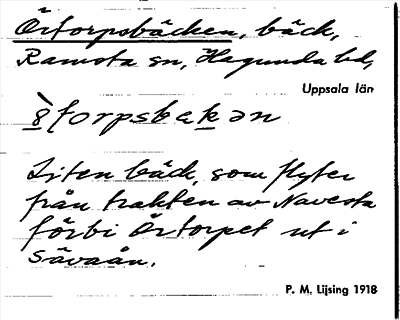 Örtorpsbäcken, bäck,
Ramsta sn, Hagunda hd,
Uppsala län
Liten bäck, som flyter
från trakten av Navesta
förbi Örtorpet ut i
Sävaån.
P. M. Lijsing 1918